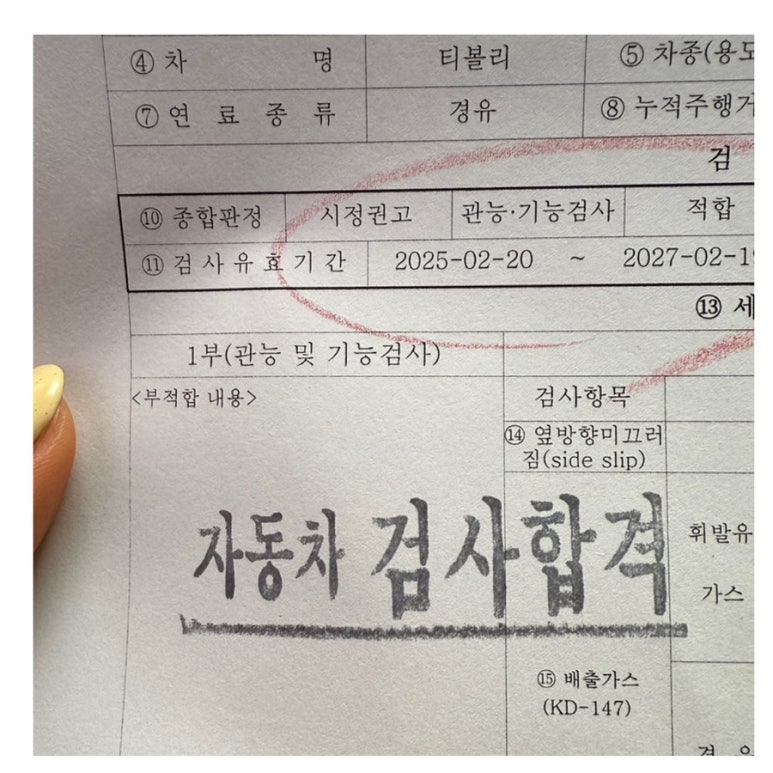 ④ 차 명 티볼리 ⑤ 차종(용도
⑦ 연 료 종 류 경유 ⑧ 누적주행거
검
⑩ 종합판정 시정권고 관능·기능검사 적합
⑪ 검 사 유 효 기 간 2025-02-20 ~ 2027-02-19
⑬ 세
1부(관능 및 기능검사)
<부적합 내용> 검사항목
⑭ 옆방향미끄러
짐(side slip)
자동차 검사합격
휘발유
가스
⑮ 배출가스
(KD-147)
경 유